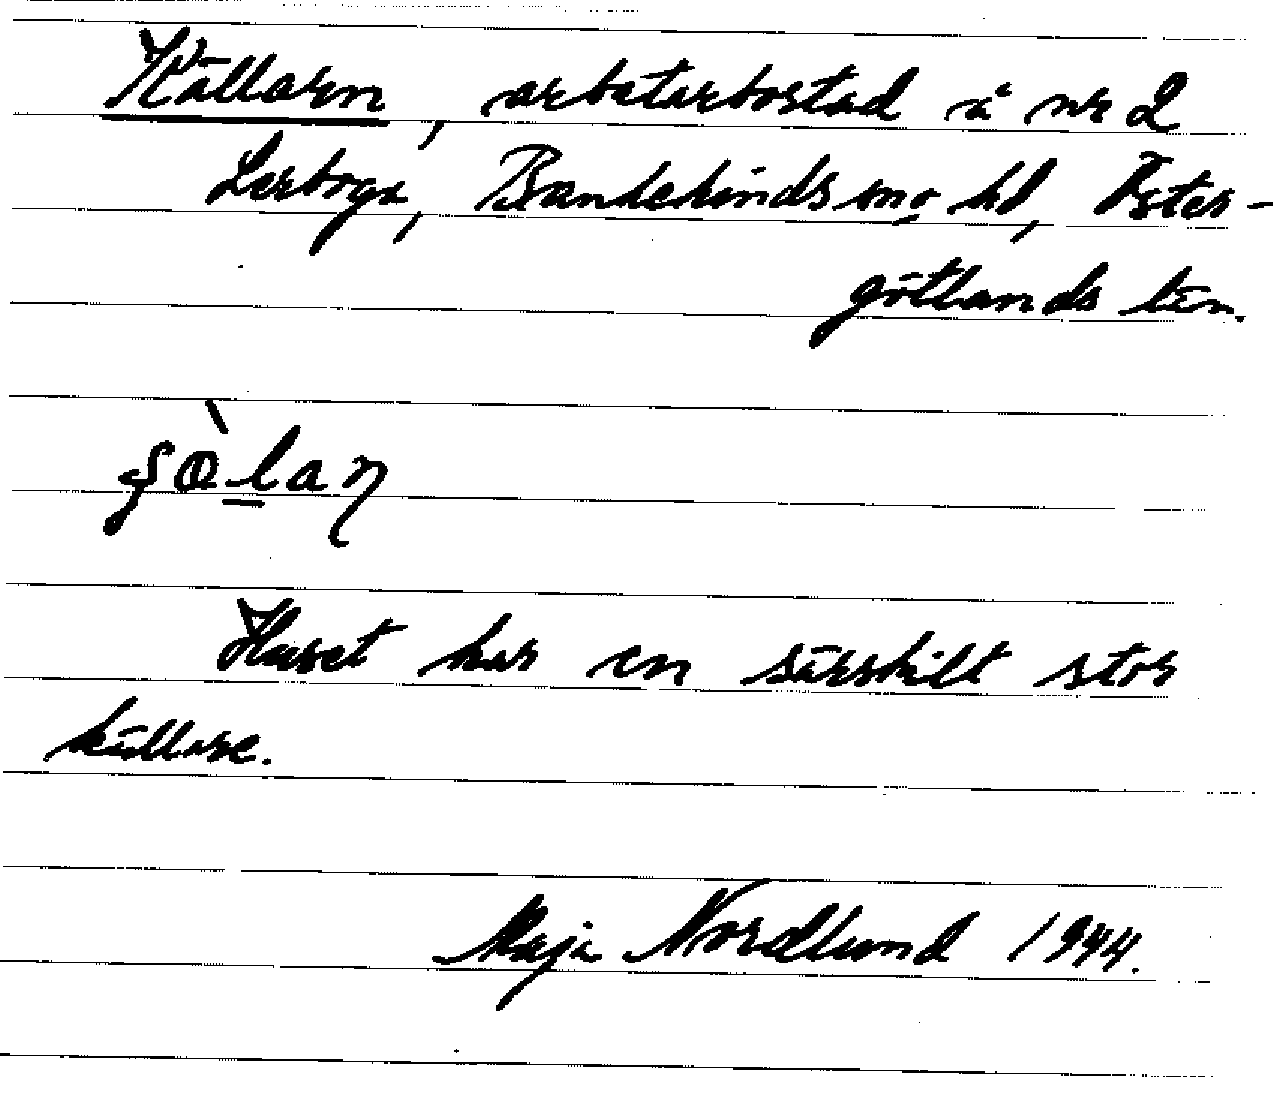 Källarn, arbetarbostad å nr 2
Lerboga, Bankekinds sn, hd, Öster-
götlands län.
Huset har en särskilt stor
källare.
Maja Nordlund 1944.